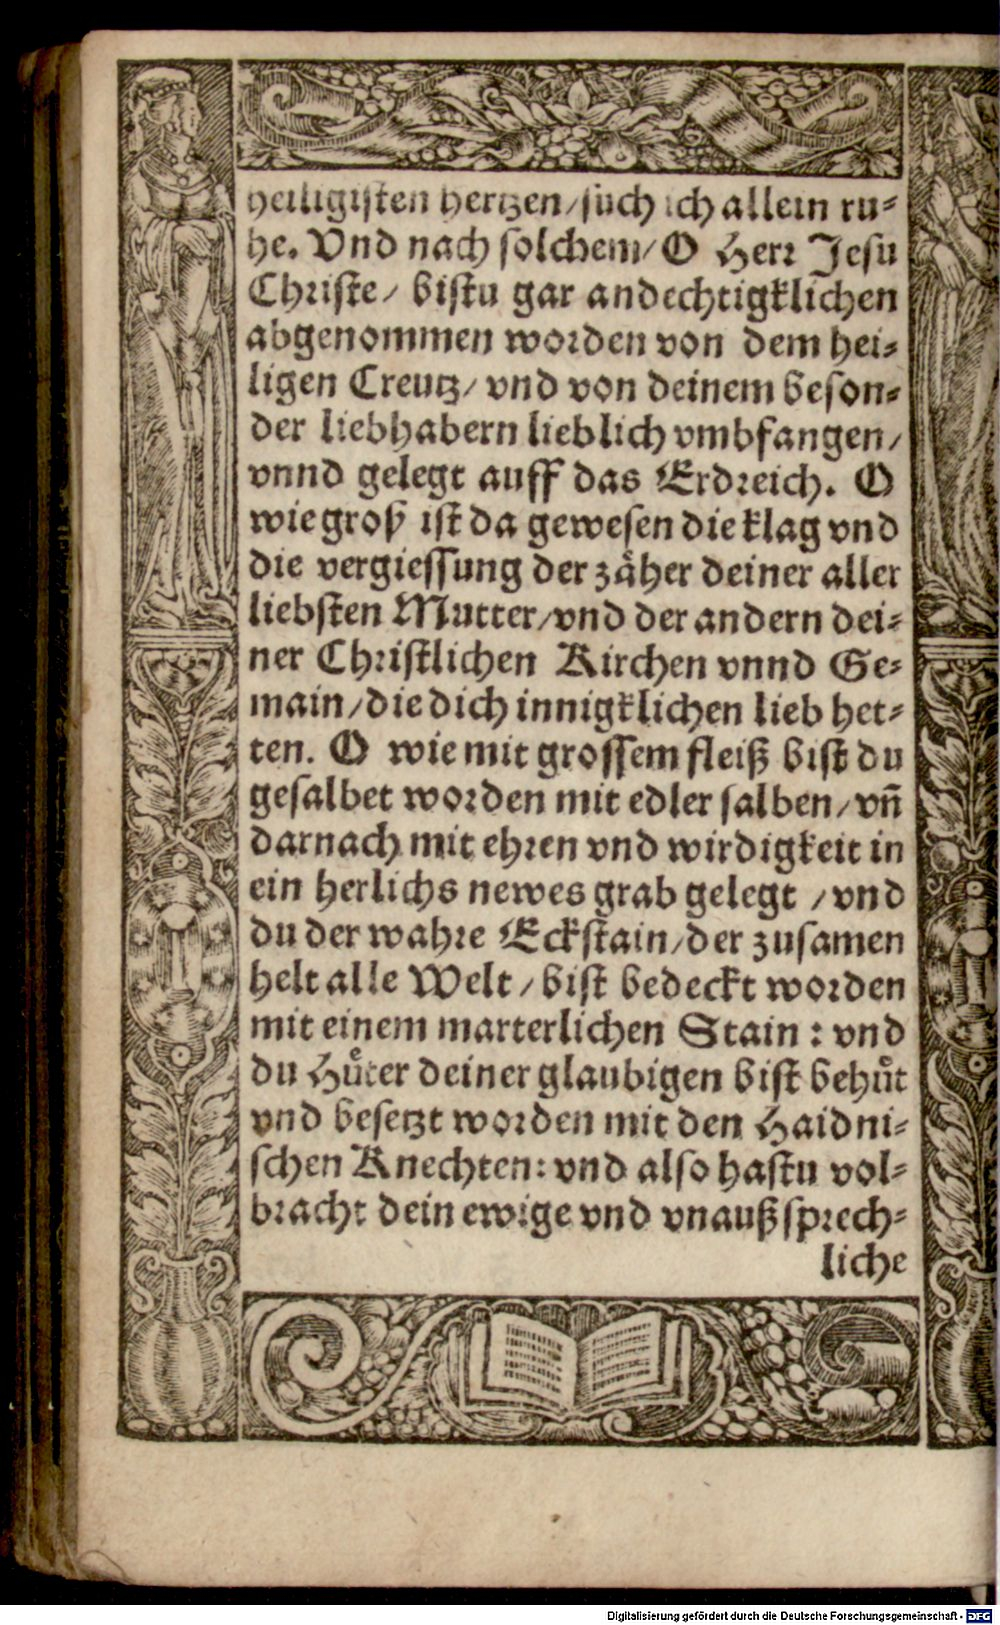 heiligisten hertzen/such ich allein ru⸗
he. Vnd nach solchem/ O Herr Jesu
Christe/ bistu gar andechtigklichen
abgenommen worden von dem hei⸗
ligen Creutz/ vnd von deinem beson⸗
der liebhabern lieblich vmbfangen/
vnnd gelegt auff das Erdreich. O
wie groß ist da gewesen die klag vnd
die vergiessung der zäher deiner aller
liebsten Mutter/vnd der andern dei⸗
ner Christlichen Kirchen vnnd Ge⸗
main/die dich innigklichen lieb het⸗
ten. O wie mit grossem fleiß bist du
gesalbet worden mit edler salben/ vñ
darnach mit ehren vnd wirdigkeit in
ein herlichs newes grab gelegt /vnd
du der wahre Eckstain/der zusamen
helt alle Welt/ bist bedeckt worden
mit einem marterlichen Stain: vnd
du Huͤter deiner glaubigen bist behuͤt
vnd besetzt worden mit den Haidni⸗
schen Knechten: vnd also hastu vol⸗
bracht dein ewige vnd vnaußsprech⸗
liche
Digitalisierung gefördert durch die Deutsche Forschungsgemeinschaft - DFG